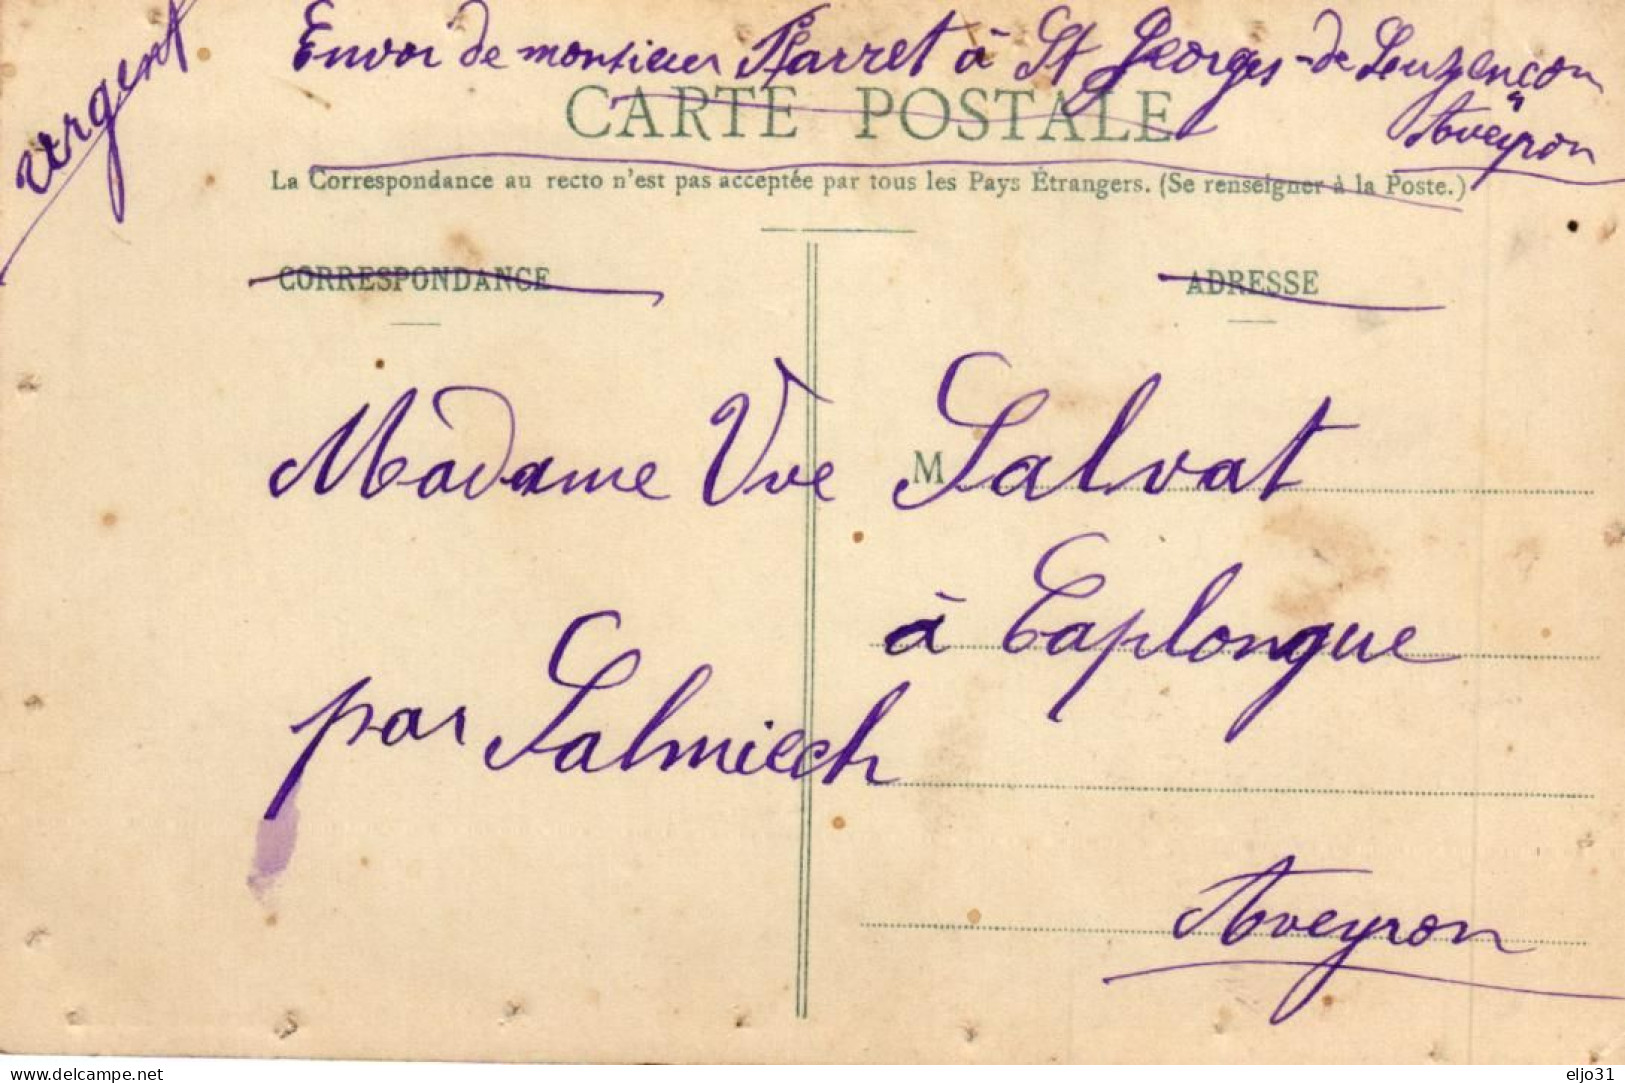 urgent
Envoi de monsieur Harret à St Georges-de Luzençon
Aveyron
CARTE POSTALE
La Correspondance au recto n'est pas acceptée par tous les Pays Étrangers. (Se renseigner à la Poste.)
CORRESPONDANCE
ADRESSE
Madame Vve M Salvat
à Caplongue
par Salmiech
Aveyron
www.delcampe.net
eljo31